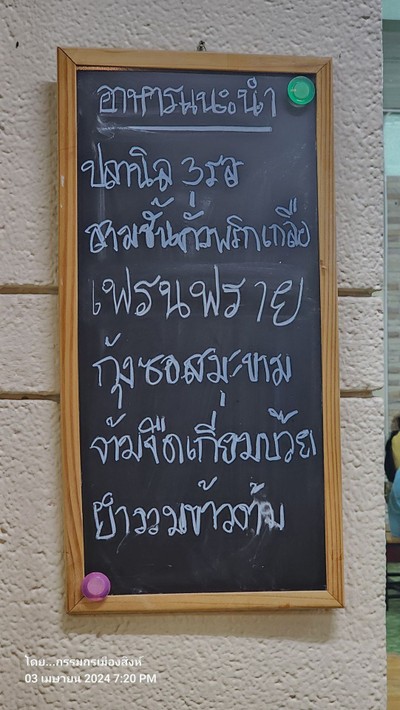 อาหารแนะนำ
ปลานิล 3 รส
สามชั้นคั่วพริกเกลือ
เฟรนฟราย
กุ้งซอสมะขาม
ต้มจืดเกี่ยมบ๊วย
ยำรวมข้าวต้ม
โดย...กรรมกรเมืองสิงห์
03 เมษายน 2024 7:20 PM